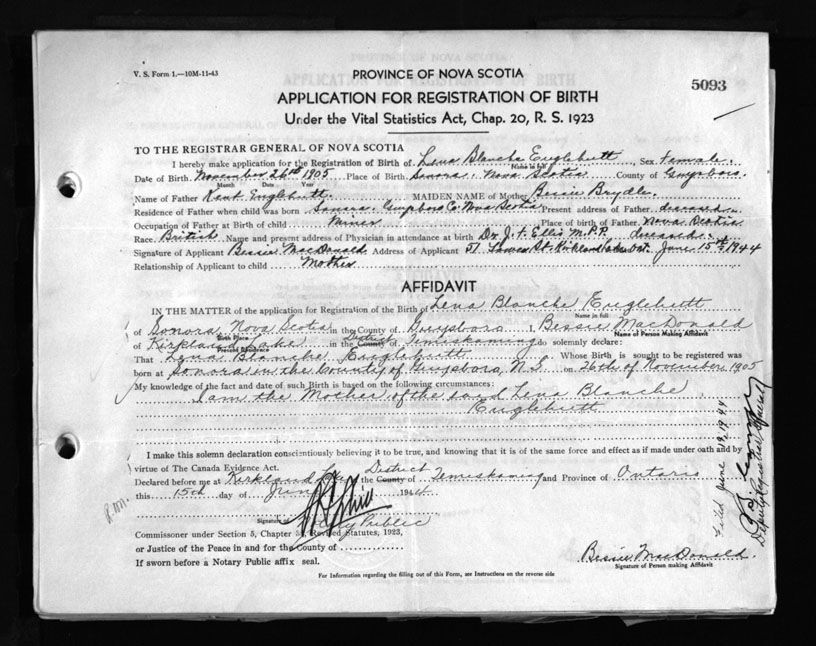 V. S. Form 1.—10M-11-43
PROVINCE OF NOVA SCOTIA
5093
APPLICATION FOR REGISTRATION OF BIRTH
Under the Vital Statistics Act, Chap. 20, R. S. 1923
TO THE REGISTRAR GENERAL OF NOVA SCOTIA
I hereby make application for the Registration of Birth of Lena Blanche Englehutt, Sex female.
Name in full
Date of Birth November 26th 1905 Place of Birth Sonora, Nova Scotia County of Guysboro.
Month Date Year
Name of Father Kent Englehutt. MAIDEN NAME of Mother Bessie Brydle.
Residence of Father when child was born Sonora, Guysboro Co. Nova Scotia Present address of Father deceased
Occupation of Father at Birth of child Miner Place of birth of Father Nova Scotia
Race British Name and present address of Physician in attendance at birth Dr J. F. Ellis M.P.P. deceased.
Signature of Applicant Bessie MacDonald Address of Applicant 51 Kirkland Lake Ont. June 15th 1944
Relationship of Applicant to child Mother
AFFIDAVIT
IN THE MATTER of the application for Registration of the Birth of Lena Blanche Englehutt
Name in full
of Sonora Nova Scotia in the County of Guysboro I, Bessie MacDonald
Birth Place Name of Person Making Affidavit
of Kirkland Lake in the County District of Temiskaming do solemnly declare:
Present Residence
That Lena Blanche Englehutt Whose Birth is sought to be registered was
born at Sonora in the County of Guysboro, N.S. on 26th of November 1905
My knowledge of the fact and date of such Birth is based on the following circumstances:
I am the Mother of the said Lena Blanche
Englehutt
I make this solemn declaration conscientiously believing it to be true, and knowing that it is of the same force and effect as if made under oath and by
virtue of The Canada Evidence Act.
Declared before me at Kirkland Lake District the County of Temiskaming and Province of Ontario
this 15th day of June 1944
Signature
Notary Public
Commissioner under Section 5, Chapter Revised Statutes, 1923,
or Justice of the Peace in and for the County of
If sworn before a Notary Public affix seal.
Bessie MacDonald.
Signature of Person making Affidavit
For Information regarding the filling out of this Form, see Instructions on the reverse side
Filed June 19, 1944
Deputy Registrar General